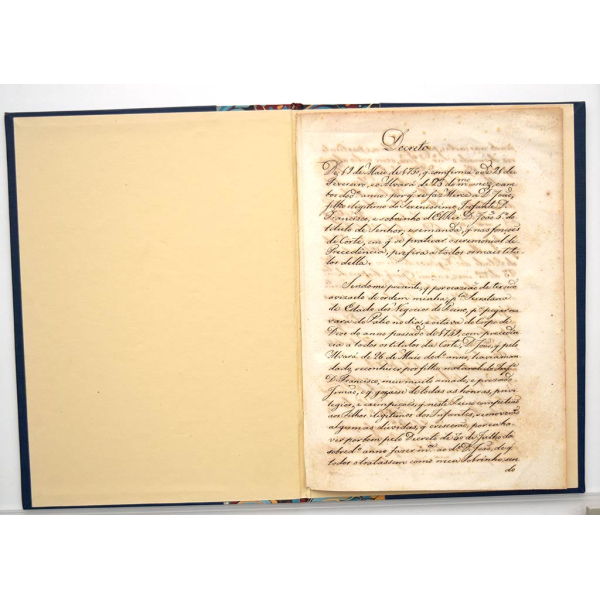 Decreto
De 19 de Maio de 1750, q confirma o de 21 de
Fevereiro, e o Alvará de 25 do m.mo mez, e am-
bos de d.o anno: por q se faz Mercê a D. João,
filho legitimo do Serenissimo Infante D.
Francisco, e sobrinho d'ElRei D. João 5.o do
titulo de Senhor, e se manda, q nas funções
de Corte, em q se praticar o ceremonial de
Precedencia, prefira a todos os mais titu-
lares della.
Sendo me prezente, q por occazião de ter sido
avizado de ordem minha, p.la Secretaria
de Estado dos Negocios do Reino, p.a pegar na
vara do Palio no dia, e oitava do Corpo de
Deos do anno passado de 1749, com preceden-
cia a todos os titulos da Corte, D. João, q pelo
Alvará de 26 de Maio do d.o anno, havia man-
dado reconhecer, por filho natural do Inf.e
D. Francisco, meu muito amado, e prezado
Irmão, e q gozasse de todas as honras, privi-
legios, e exempçoens, q neste Reino competem
aos filhos illigitimos dos Infantes, se movérão
algumas duvidas, q cresceram, por eu ha-
ver por bem pelo Decreto de 30 de Julho do
sobred.o anno fazer m.ce ao d.o D. João, de q
todos o tratassem como meu Sobrinho, sen
do